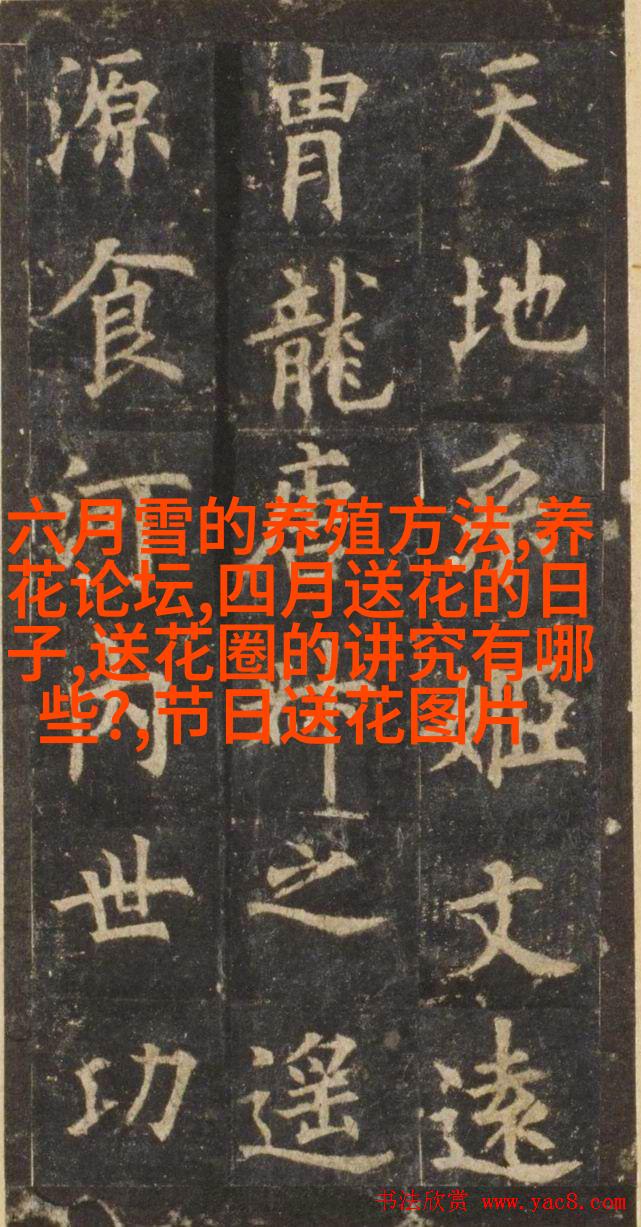 天地姬文遠
胄龍唐之遥
源食内世功
六月雪的养殖方法,养
花论坛,四月送花的日
子,送花圈的讲究有哪
些?,节日送花图片
书法欣赏 www.yac8.com